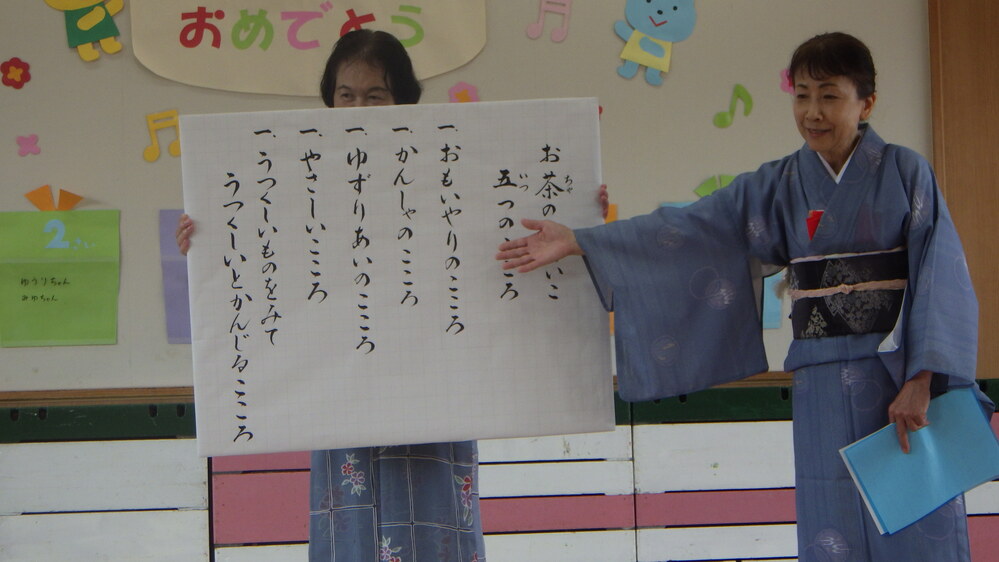 おめでとう
お茶の いこ
五つの ころ
いつ
一、おもいやりのこころ
一、かんしゃのこころ
一、ゆずりあいのこころ
一、やさしいこころ
一、うつくしいものをみて
うつくしいとかんじるこころ
2さい